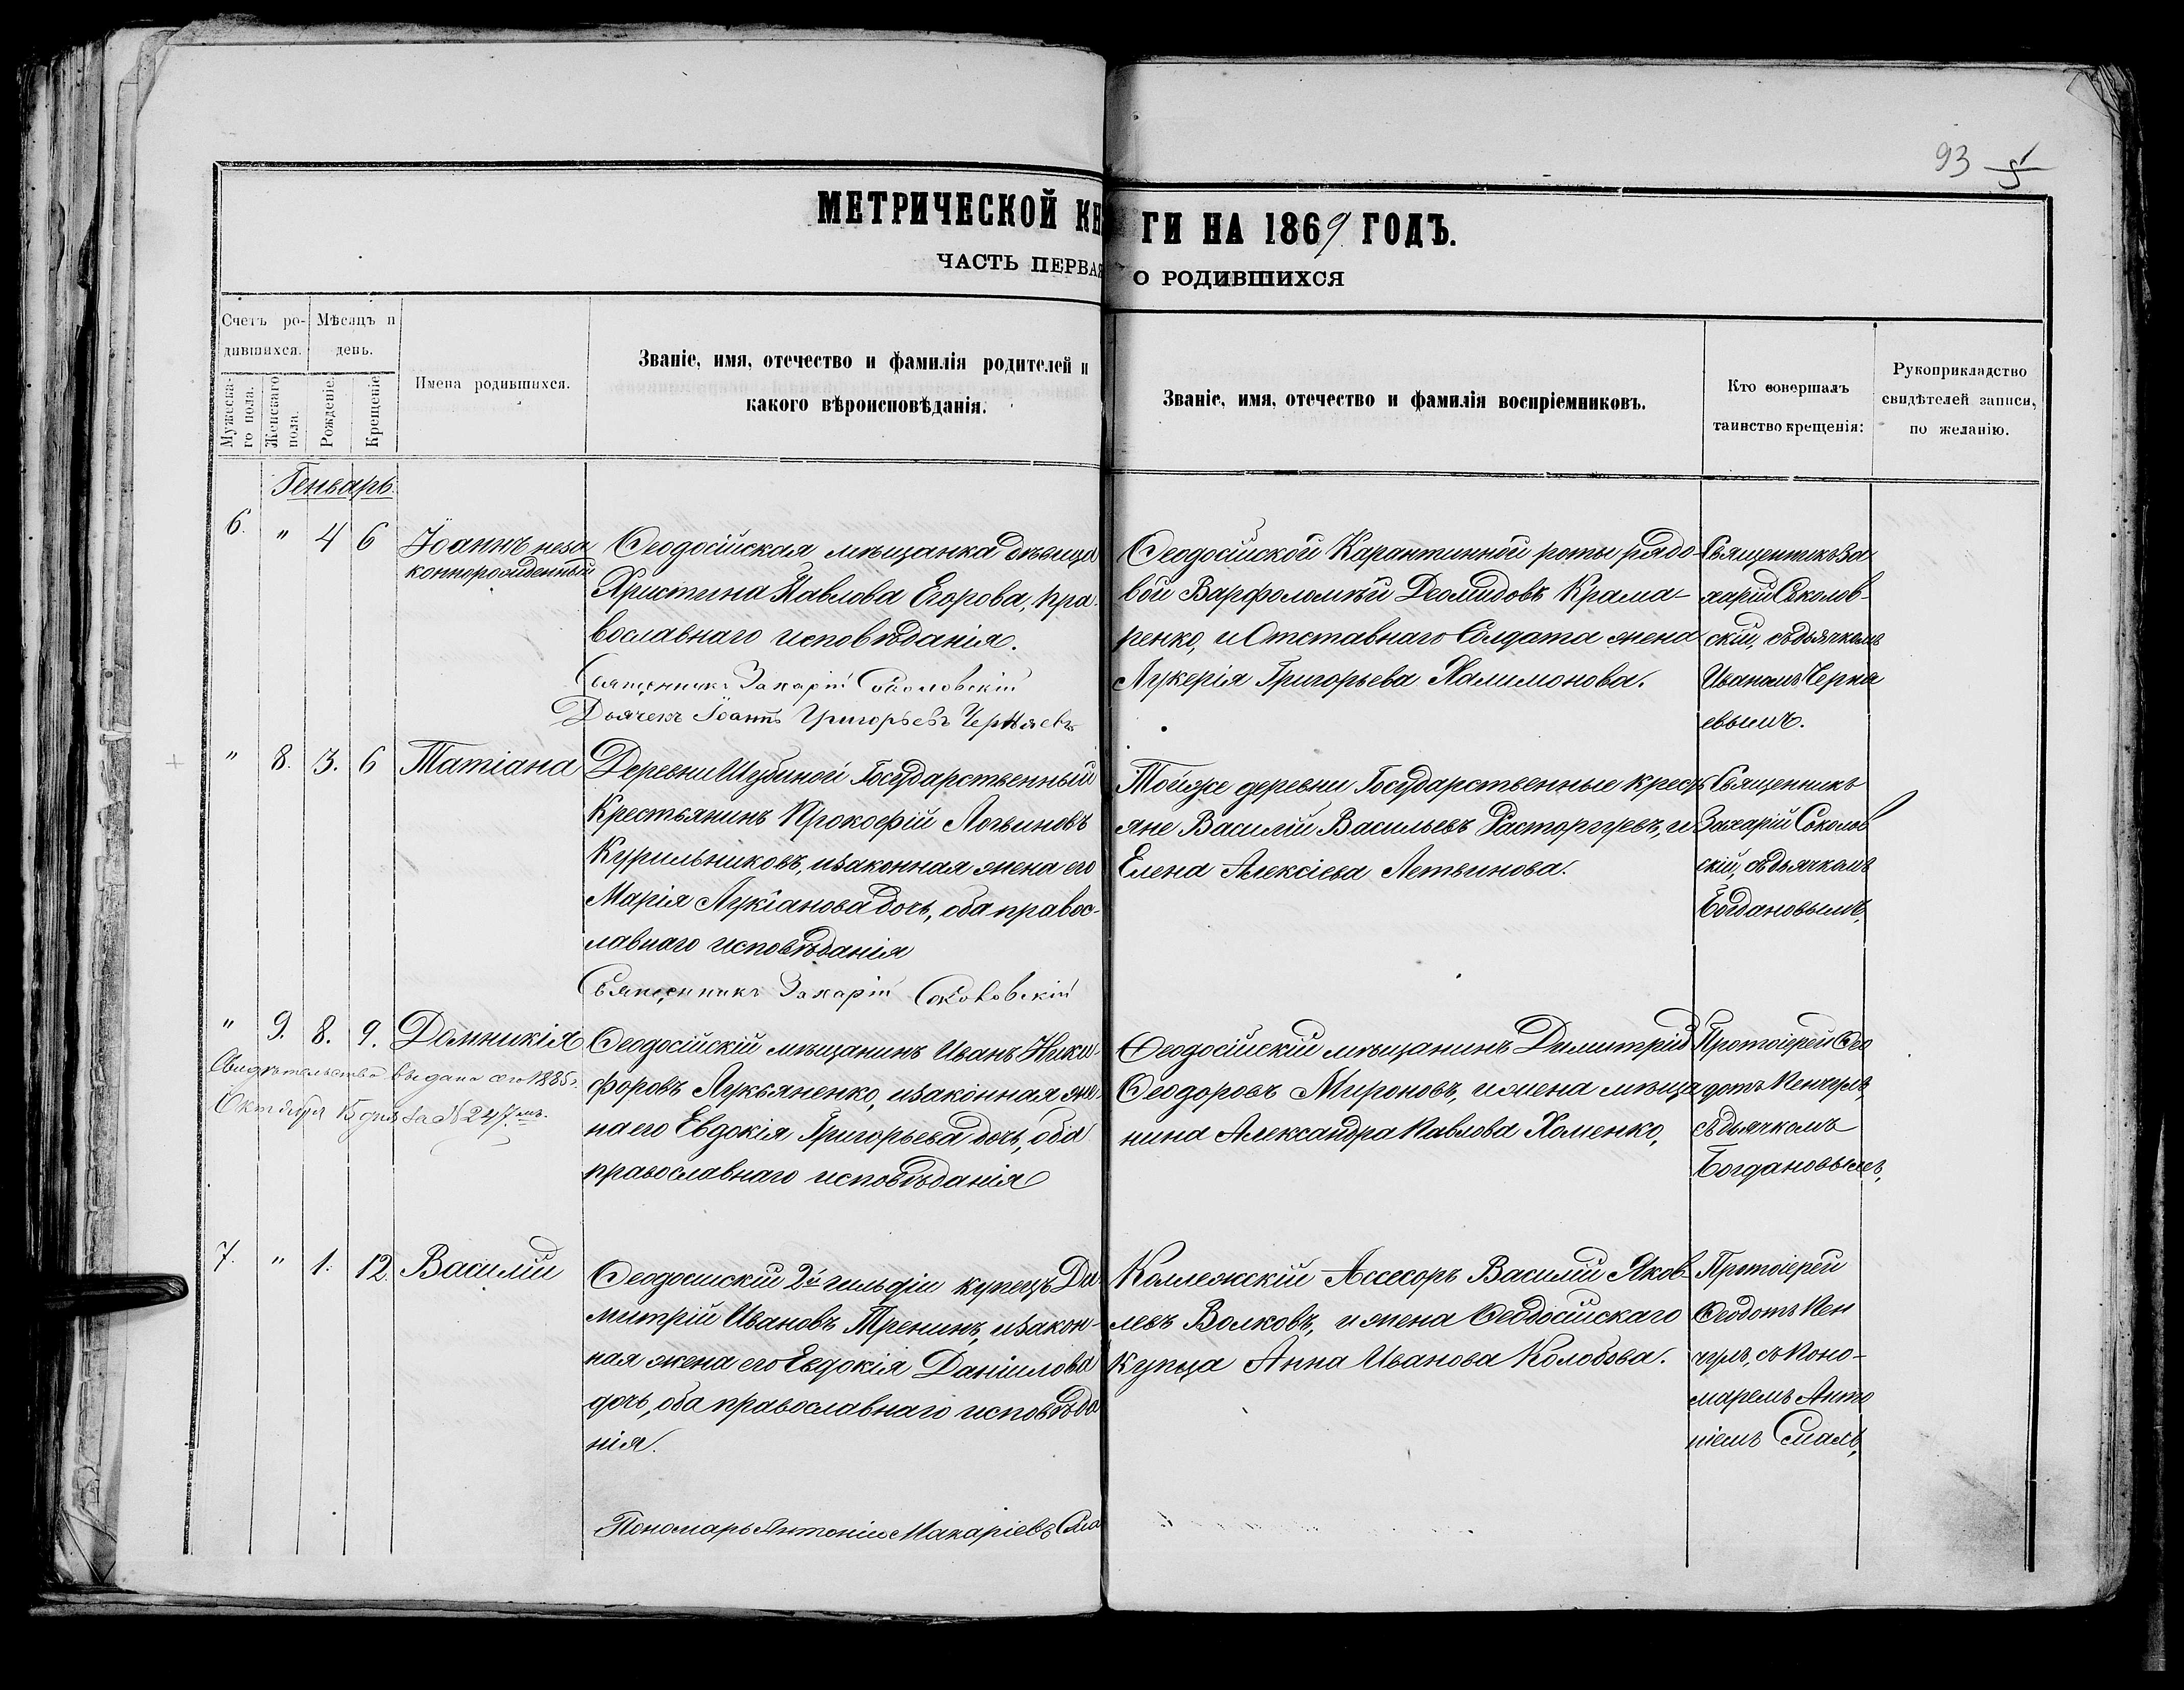 93 5
МЕТРИЧЕСКОЙ КНИГИ НА 1869 ГОДЪ.
ЧАСТЬ ПЕРВАЯ О РОДИВШИХСЯ
Счетъ ро-
дившихся.
Мѣсяцъ и
день.
Мужеска-
го пола.
Женскаго
пола.
Рожденіе.
Крещеніе
Имена родившихся.
Званіе, имя, отечество и фамилія родителей и
какого вѣроисповѣданія.
Званіе, имя, отечество и фамилія воспріемниковъ.
Кто совершалъ
таинство крещенія:
Рукоприкладство
свидѣтелей записи,
по желанію.
Генварь.
6. " 4 6
Іоаннъ неза
коннорожденный
Ѳеодосійская мѣщанка дѣвица
Христина Павлова Егорова, пра-
вославнаго исповѣданія.
Священникъ Захарій Соколовскій
Дьячекъ Іоаннъ Григорьевъ Черняевъ
Ѳеодосійской Карантинной роты рядо-
вой Варфоломѣй Деомидовъ Крама-
ренко, и Отставнаго Солдата жена
Лукерія Григорьева Халимонова.
Священникъ За
харій Соколов-
скій, съ дьячкомъ
Иваномъ Черня
евымъ.
" 8. 3. 6
Татіана
Деревни Шубиной Государственный
Крестьянинъ Прокофій Логвиновъ
Курильниковъ, и законная жена его
Марія Лукіанова дочь, оба правос-
лавнаго исповѣданія
Священникъ Захарій Соколовскій
Тойже деревни Государственные кресть
яне Василій Васильевъ Расторгуевъ, и
Елена Алексіева Летвинова.
Священникъ
Захарій Соколов
скій, съ дьячкомъ
Богдановымъ,
" 9. 8. 9.
Домникія
Свидѣтельство выдано сего 1885 г.
Октября 15 дня за № 247мъ.
Ѳеодосійскій мѣщанинъ Иванъ Ники-
форовъ Лукьяненко, и законная же-
на его Евдокія Григорьева дочь, оба
православнаго исповѣданія
Ѳеодосійскій мѣщанинъ Димитрій
Ѳеодоровъ Мироновъ, и жена мѣща
нина Александра Павлова Хоменко,
Протоіерей Ѳео
дотъ Кенчулъ,
съ дьячкомъ
Богдановымъ,
7. " 1. 12.
Василій
Ѳеодосискій 2й гильдіи купецъ Ди
митрій Ивановъ Тренинъ, и закон-
ная жена его Евдокія Даніилова
дочь, оба православнаго исповѣда
нія.
Пономарь Антоній Макаріевъ
Коллежскій Ассесоръ Василій Яков
левъ Волковъ, и жена Ѳеодосійскаго
Купца Анна Иванова Колобова.
Протоіерей
Ѳеодотъ Кен
чулъ, съ поно-
маремъ Анто
ніемъ Смаль,